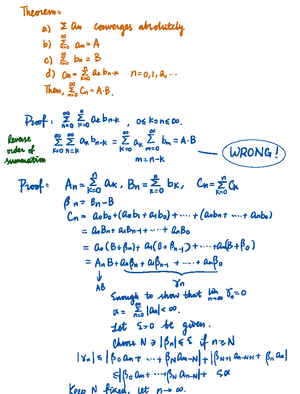 Theorem:
a) Σ an converges absolutely
b) Σ_{n=0}^{∞} an = A
c) Σ_{n=0}^{∞} bn = B
d) Cn = Σ_{k=0}^{n} ak bn-k n=0,1,2,...
Then, Σ_{n=0}^{∞} Cn = A·B.
Proof: Σ_{n=0}^{∞} Σ_{k=0}^{n} ak bn-k , 0≤k≤n≤∞.
Reverse order of summation
Σ_{k=0}^{∞} Σ_{n=k}^{∞} ak bn-k = Σ_{k=0}^{∞} ak Σ_{m=0}^{∞} bm = A·B
m=n-k
WRONG!
Proof: An = Σ_{k=0}^{n} ak, Bn = Σ_{k=0}^{n} bk, Cn = Σ_{k=0}^{n} Ck
βn = Bn - B
Cn = a0b0 + (a0b1 + a1b0) + ···· + (a0bn + ···· anb0)
= a0Bn + a1Bn-1 + ···· + anB0
= a0(B+βn) + a1(B+βn-1) + ···· + an(B+β0)
= AnB + a0βn + a1βn-1 + ···· + anβ0
γn
AB
Enough to show that lim_{n→∞} γn = 0
α = Σ_{n=0}^{∞} |an| < ∞.
Let ε>0 be given.
Choose N ∋ |βn| ≤ ε if n≥N
|γn| ≤ |β0an + ··· + βNan-N| + |βN+1an-N-1 + ··· + βna0|
≤ |β0an + ··· + βNan-N| + εα
Keep N fixed, let n → ∞.